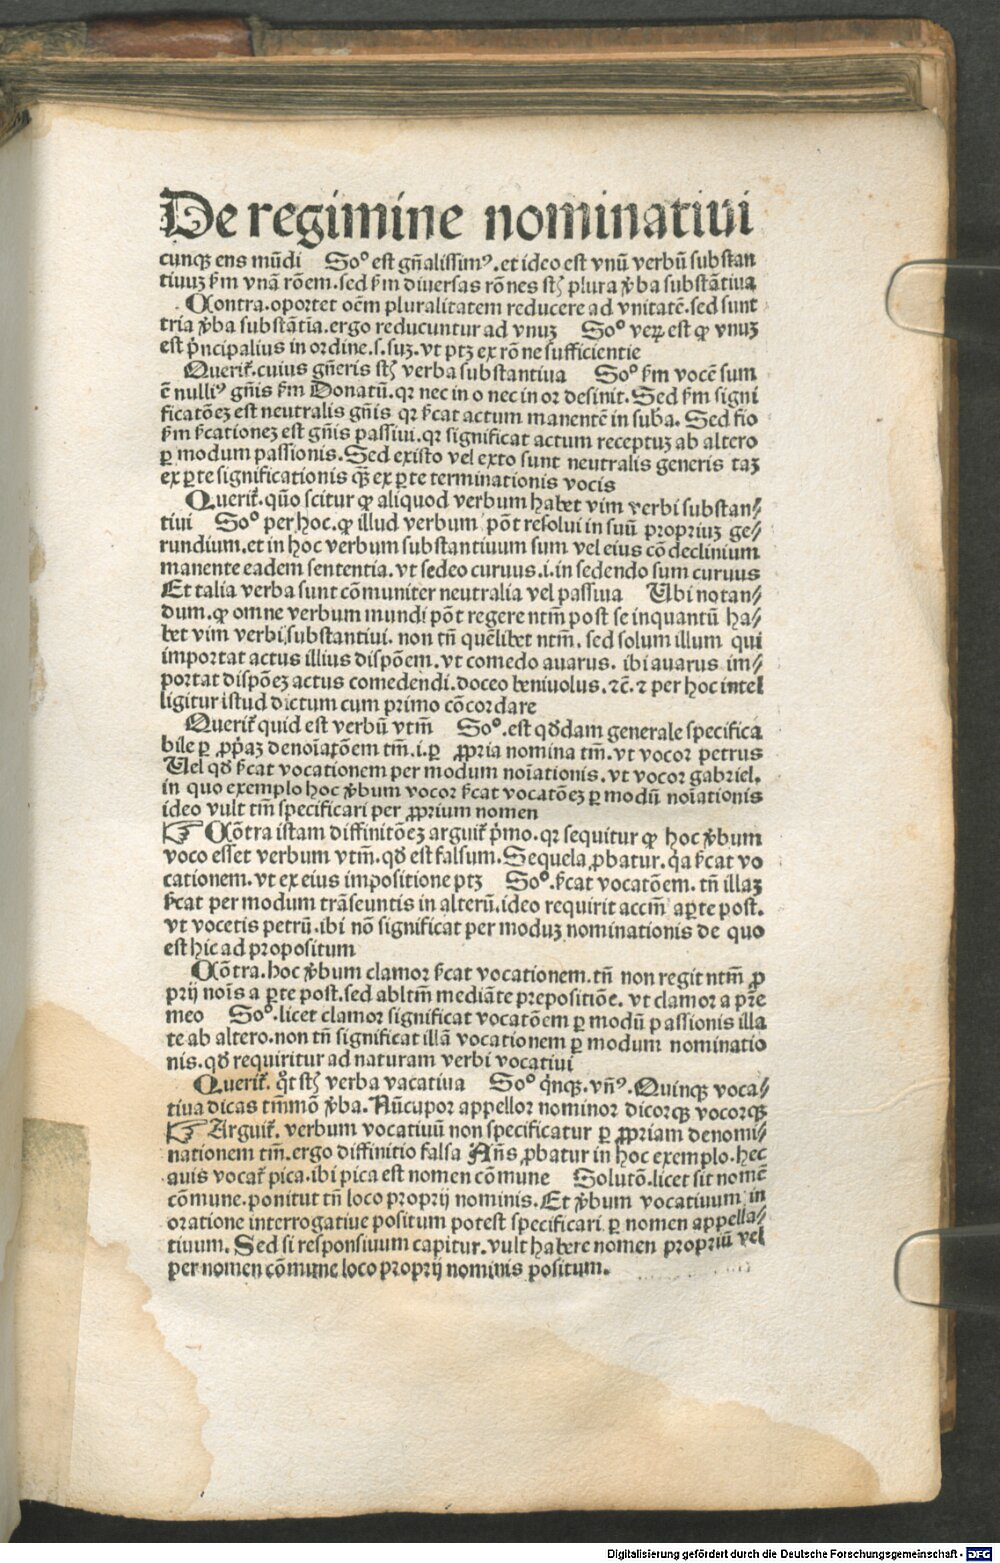 De regimine nominatiui
cunqꝫ ens mũdi Soº est gñalissimꝰ.et ideo est vnũ verbũ substan
tiuuꝫ ẜm vnã rõem.sed ẜm diuersas rõnes stꝫ plura ṽba substãtiua
Cõtra.oportet oẽm pluralitatem reducere ad vnitatẽ.sed sunt
tria ṽba substãtia.ergo reducuntur ad vnuꝫ Soº veꝝ est ꝙ vnuꝫ
est p̃ncipalius in ordine.s.suꝫ.vt ptꝫ ex rõne sufficientie
Querit̃.cuius gñeris stꝫ verba substantiua Soº ẜm vocẽ sum
ẽ nulliꝰ gñis ẜm Donatũ.qꝛ nec in o nec in or desinit.Sed ẜm signi
ficatõeꝫ est neutralis gñis qꝛ ẜcat actum manentẽ in suba. Sed fio
ẜm ẜcationeꝫ est gñis passiui.qꝛ significat actum receptuꝫ ab altero
ꝑ modum passionis.Sed existo vel exto sunt neutralis generis taꝫ
ex ꝑte significationis qꝫ̃ ex ꝑte terminationis vocis
Querit̃.qũo scitur ꝙ aliquod verbum habet vim verbi substan⸗
tiui Soº per hoc.ꝙ illud verbum põt resolui in suũ propriuꝫ ge⸗
rundium.et in hoc verbum substantiuum sum vel eius cõdeclinium
manente eadem sententia.vt sedeo curuus.i.in sedendo sum curuus
Et talia verba sunt cõmuniter neutralia vel passiua Ubi notan⸗
dum.ꝙ omne verbum mundi põt regere ntm̃ post se inquantũ ha⸗
bet vim verbi substantiui. non tñ quẽlibet ntm̃. sed solum illum qui
importat actus illius dispõem.vt comedo auarus. ibi auarus im⸗
portat dispõeꝫ actus comedendi.doceo beniuolus.ꝛc̃.ꝛ per hoc intel
ligitur istud dictum cum primo cõcordare
Querit̃ quid est verbũ vtm̃ Soº.est qđdam generale specifica
bile ꝑ ꝓp̃aꝫ denoĩatõem tm̃.i.ꝑ ꝓpria nomina tm̃.vt vocor petrus
Uel qđ ẜcat vocationem per modum noĩationis.vt vocor gabriel.
in quo exemplo hoc ṽbum vocor ẜcat vocatõeꝫ ꝑ modũ noĩationis
ideo vult tm̃ specificari per ꝓprium nomen
☞ Cõtra istam diffinitõeꝫ arguit̃ p̃mo.qꝛ sequitur ꝙ hoc ṽbum
voco esset verbum vtm̃.qđ est falsum.Sequela ꝓbatur.q̃a ẜcat vo
cationem.vt ex eius impositione ptꝫ Soº.ẜcat vocatõem.tñ illaꝫ
ẜcat per modum trãseuntis in alterũ.ideo requirit accm̃ a ꝑte post.
vt vocetis petrũ.ibi nõ significat per moduꝫ nominationis de quo
est hic ad propositum
Cõtra.hoc ṽbum clamor ẜcat vocationem.tñ non regit ntm̃ ꝓ
prij noĩs a ꝑte post.sed abltm̃ mediãte prepositiõe. vt clamor a pr̃e
meo Soº.licet clamor significat vocatõem ꝑ modũ passionis illa
te ab altero.non tñ significat illã vocationem ꝑ modum nominatio
nis.qđ requiritur ad naturam verbi vocatiui
Querit̃. q̊t stꝫ verba vacatiua Soº q̃nqꝫ.vñꝰ.Quinqꝫ voca⸗
tiua dicas tm̃mõ ṽba.Nũcupor appellor nominor dicorqꝫ vocorqꝫ
☞ Arguit̃. verbum vocatiuũ non specificatur ꝑ ꝓpriam denomi⸗
nationem tm̃.ergo diffinitio falsa Añs ꝓbatur in hoc exemplo.hec
auis vocat̃ pica.ibi pica est nomen cõmune Solutõ.licet sit nomẽ
cõmune.ponitut tñ loco proprij nominis.Et ṽbum vocatiuum in
oratione interrogatiue positum potest specificari ꝑ nomen appella⸗
tiuum. Sed si responsiuum capitur.vult habere nomen propriũ vel
per nomen cõmune loco proprij nominis positum.
Digitalisierung gefördert durch die Deutsche Forschungsgemeinschaft - DFG